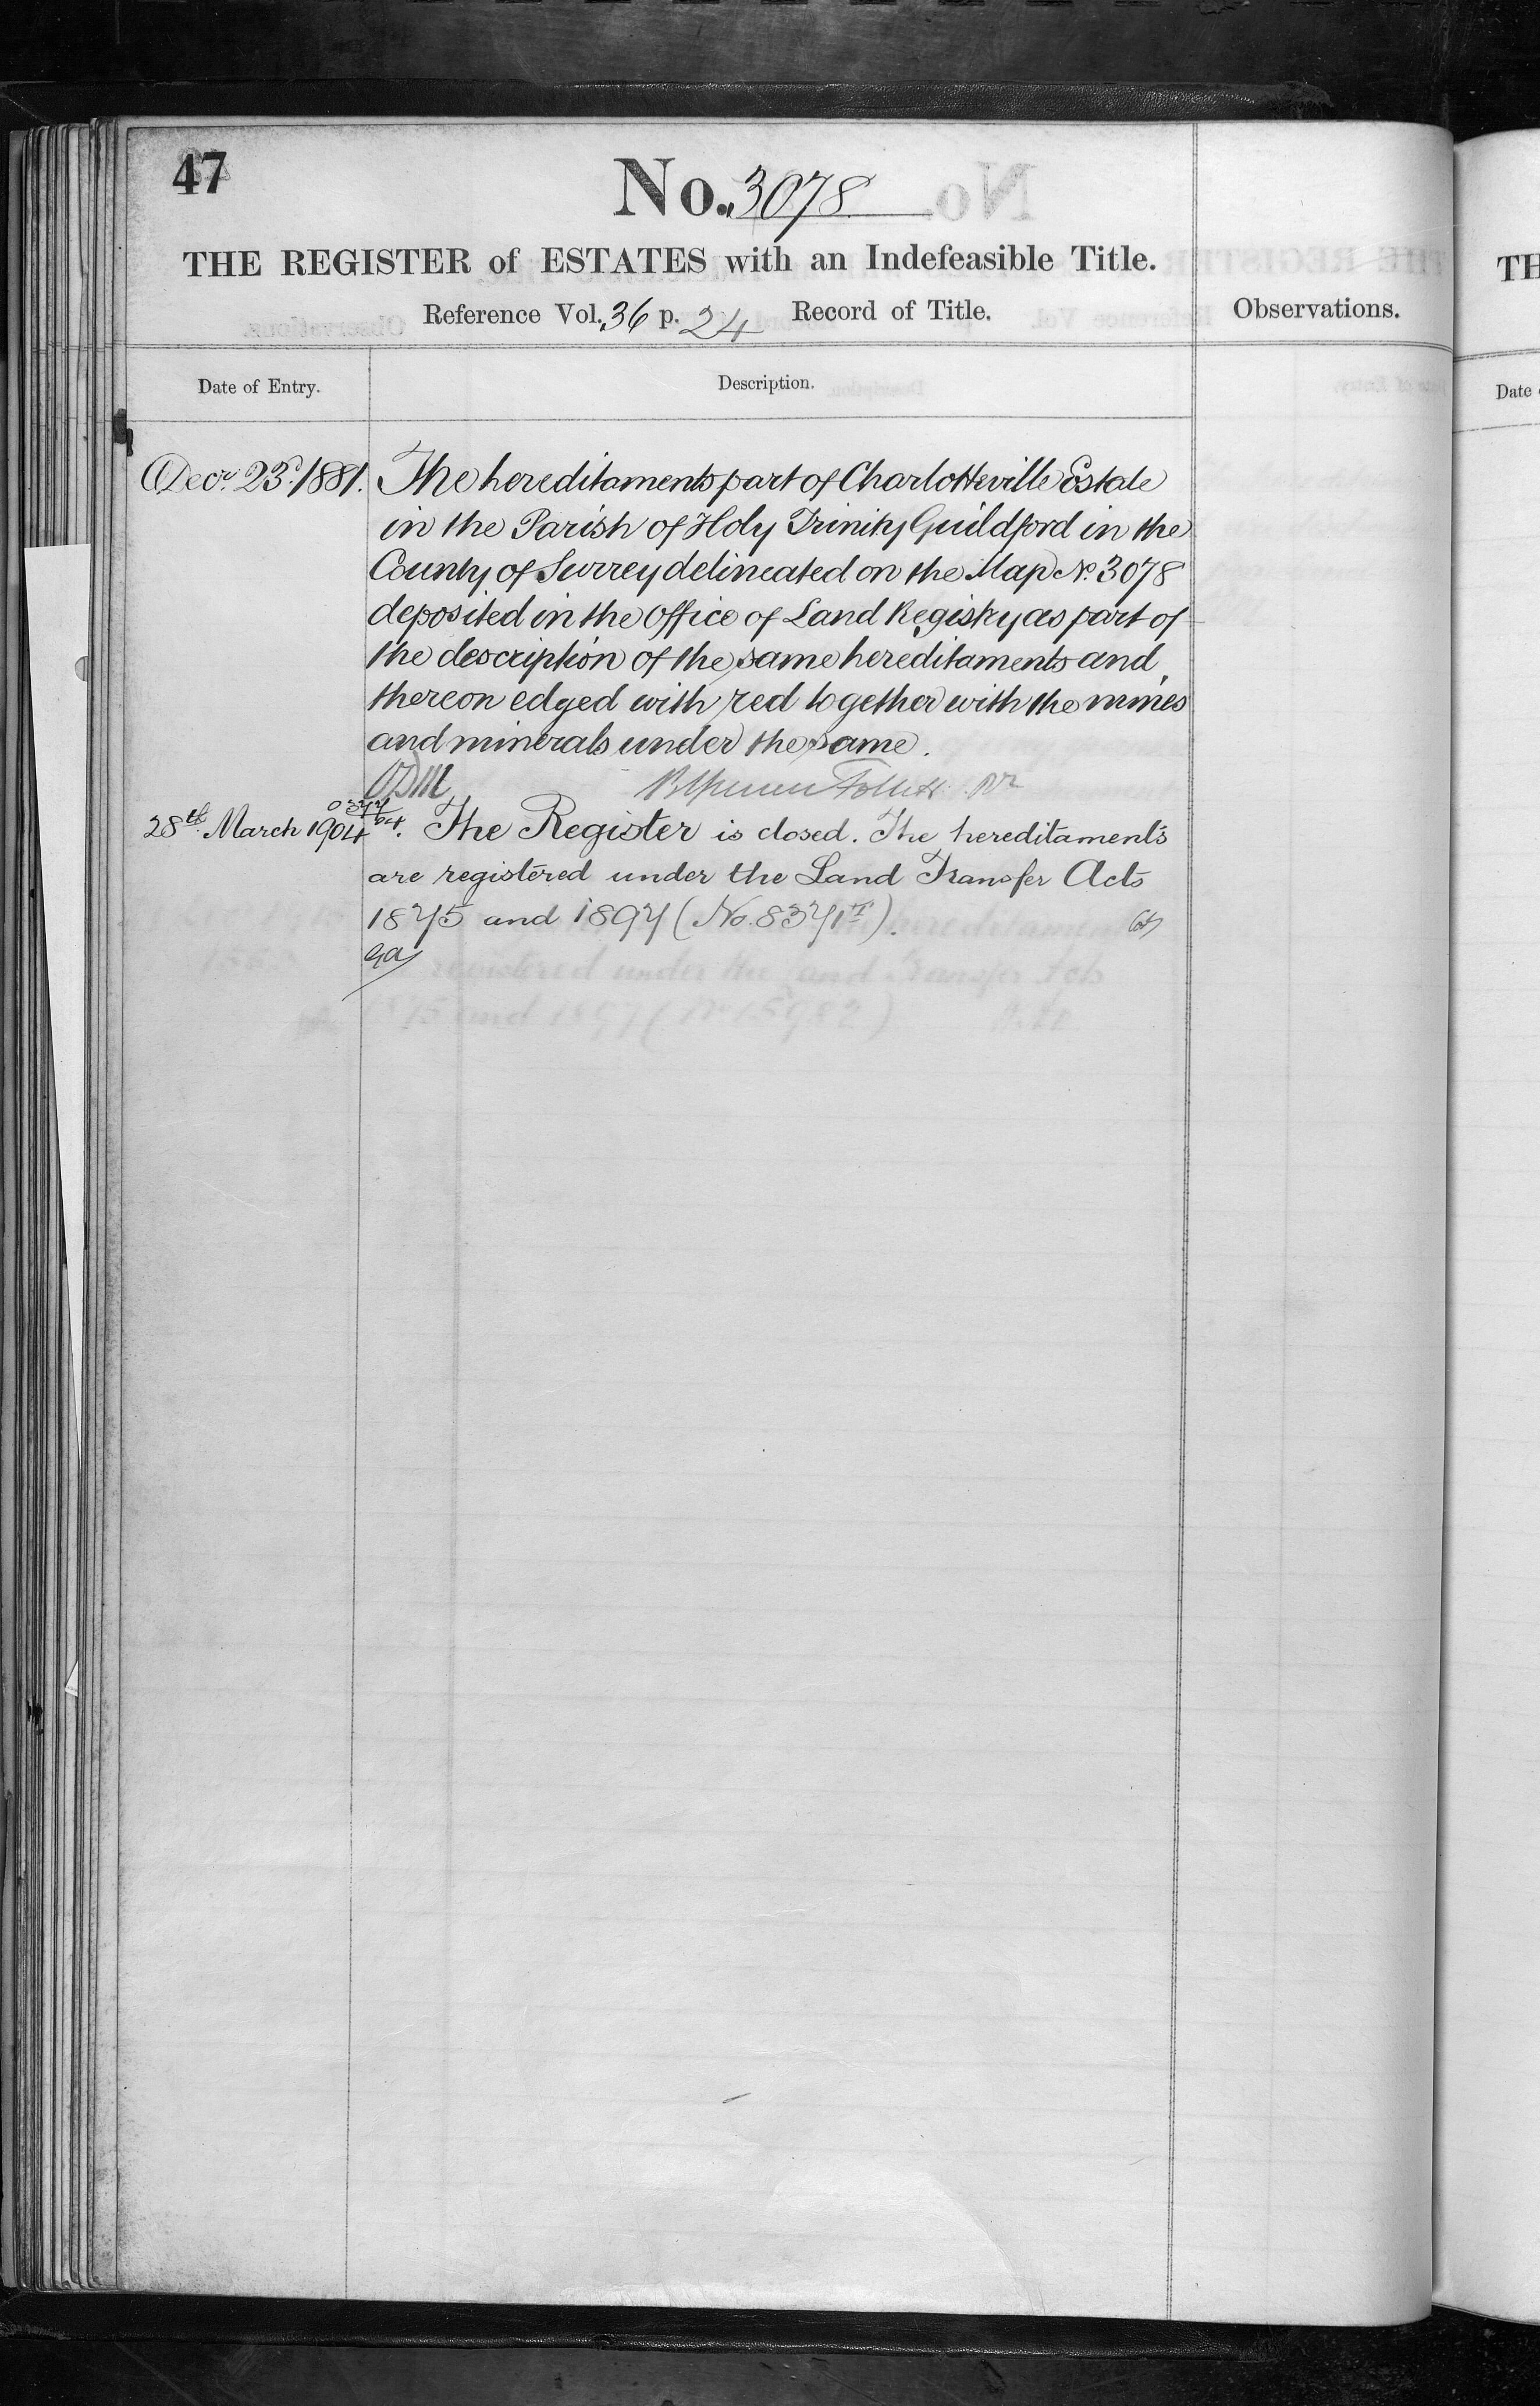 47
No. 3078
THE REGISTER of ESTATES with an Indefeasible Title.
Reference Vol. 36 p. 24 Record of Title.
Observations.
Date of Entry.
Description.
Decr. 23rd. 1881. The hereditaments part of Charlotteville Estate
in the Parish of Holy Trinity Guildford in the
County of Surrey delineated on the Map No. 3078
deposited in the Office of Land Registry as part of
the description of the same hereditaments and
thereon edged with red together with the mines
and minerals under the same.
28th. March 1904. The Register is closed. The hereditaments
are registered under the Land Transfer Acts
1875 and 1897 (No. 8371T).
TH
Date